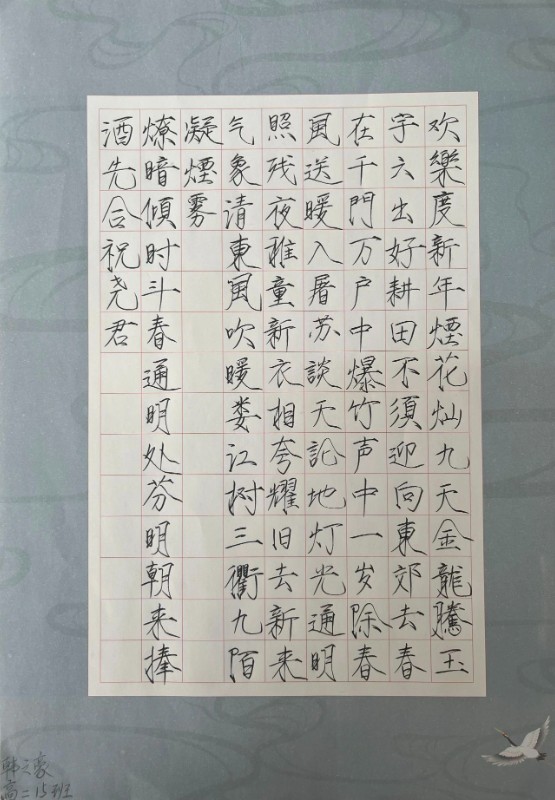 欢樂度新年煙花灿九天金龍騰玉
宇六出好耕田不須迎向東郊去春
在千門万户中爆竹声中一岁除春
風送暖入屠苏談天論地灯光通明
照残夜稚童新衣相夸耀旧去新来
气象清東風吹暖娄江树三衢九陌
凝煙雾
燎暗傾时斗春通明处芬明朝来捧
酒先合祝尧君
韩之豪
高二15班